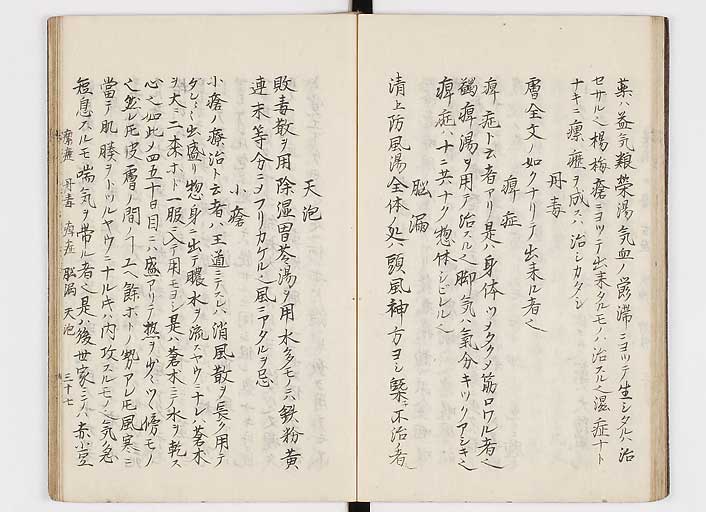 薬ハ益気養榮湯気血ノ欝滞ニヨツテ生シタルハ治
セサル也楊梅瘡ニヨツテ出来タルモノハ治スル也湿症ナト
ナキニ瘰癧ヲ成スハ治シカタシ
丹毒
膚全文ノ如クナリテ出来ル者也
痺症
痺症ト云者アリ是ハ身体ツメタク筋ロワル者也
蠲痺湯ヲ用テ治スル也脚気ハ氣分キツクアシキ也
痺症ハ十ニ共ナク惣体シビレル也
脳漏
清上防風湯全体ノ処ハ頭風神方ヨシ槩不治ノ者也
天泡
敗毒散ヲ用除湿胃苓湯ヲ用水多モノニ鉄粉黄
連末等分ニメフリカケル也風ニアタルヲ忌
小瘡
小瘡ノ療治ト云者ハ王道ニテスレハ消風散ヲ長ク用テ
タレ出盛リ惣身ニ出テ膿水ヲ流スヤウニナレハ蒼木
ヲ大ニ二朱ホト一服ニ入テ用モヨシ是ハ蒼木ニテ水ヲ乾ス
心也如此メ四五十日目ニハ盛アリテ熱ヲ少々ツヽ傍モノ
也然レ𪜈皮膚ノ間ヘ餘ホトノ勢アレ𪜈風寒ニ
當テ肌腠ヲトツルヤウニナルキハ内攻スルモノ也気急
短息スルモ喘気ヲ帶ル者也是ハ後世家ニハ赤小豆
瘰癧 丹毒 痺症 脳漏 天泡 三十七